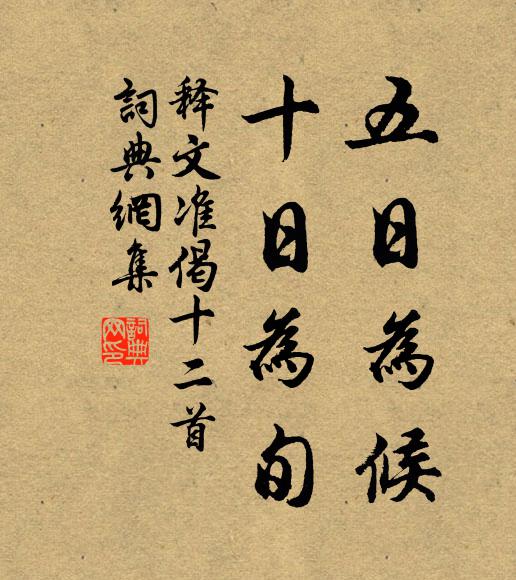 五日為候
十日為旬
释文准偈十二首
詞典網集
詞典網印